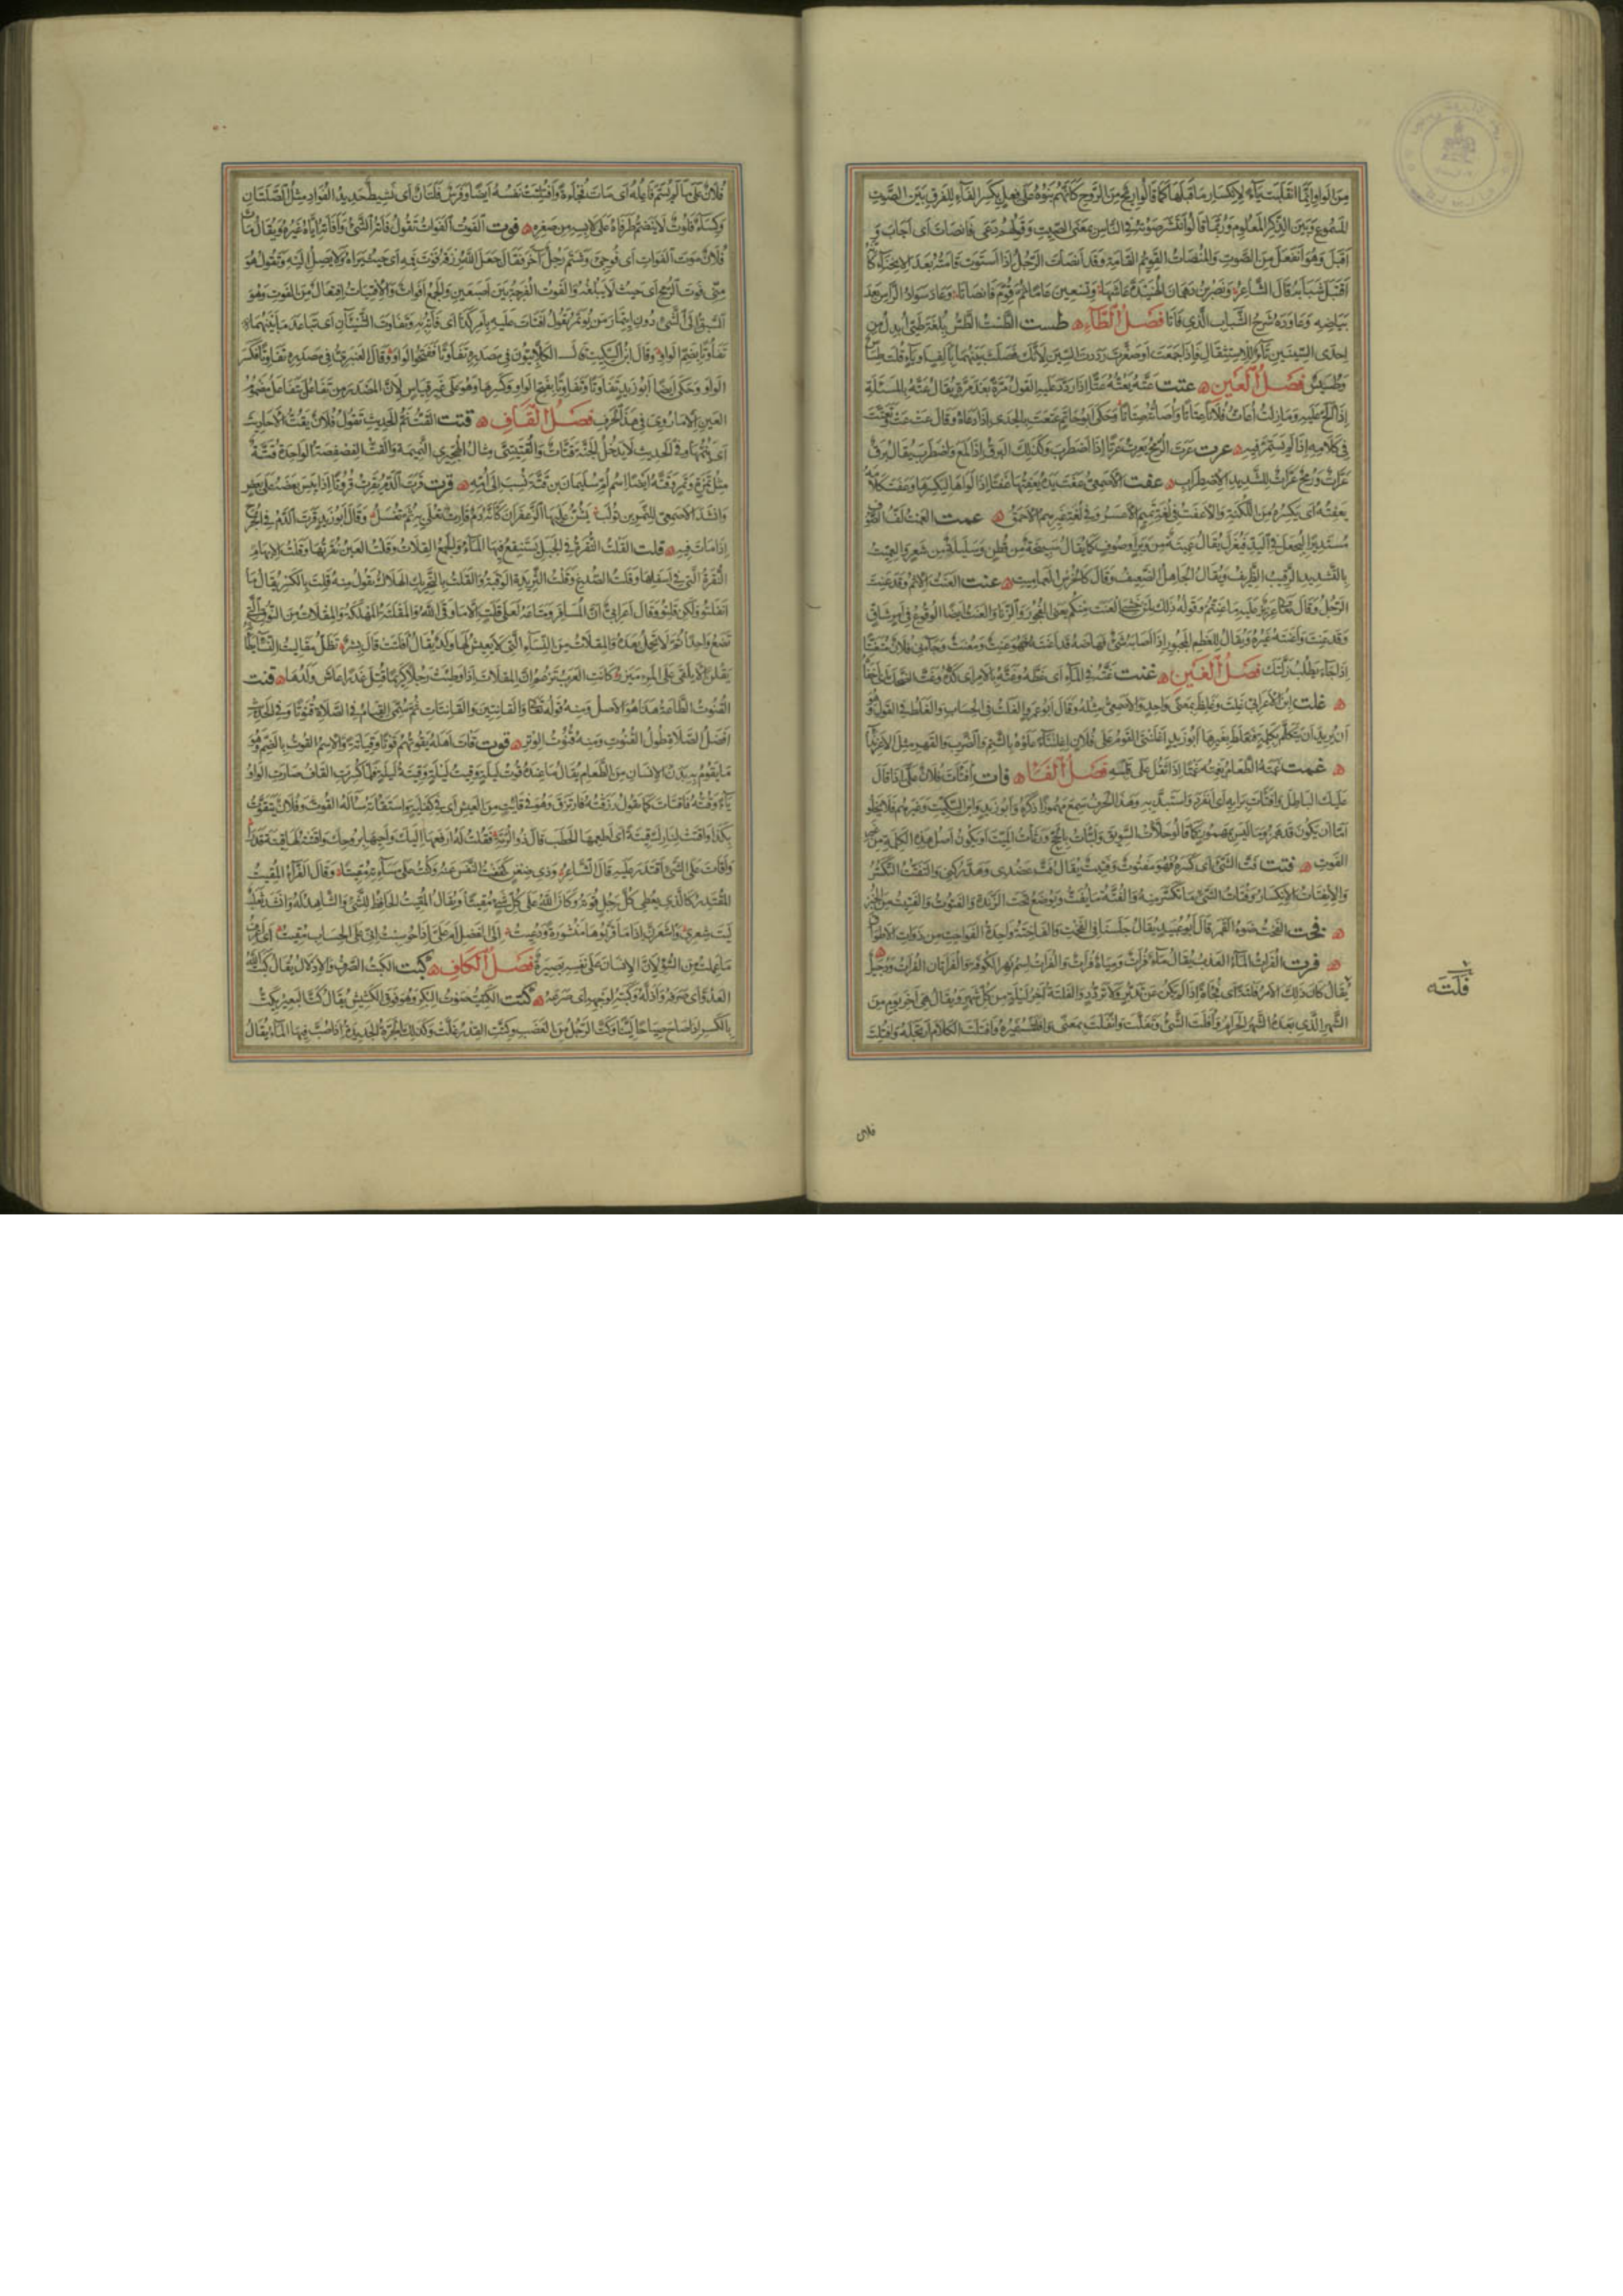 مِنَ الواو وانما انقلبت ياء لانكسار ما قبلها كما قالوا ريح من الروح كانهم بنوه على فعل بكسر الفاء للفرق بين الصوت
المسموع وبين الذكر المعلوم وربما قالوا انتشر صوته في الناس بمعنى الصيت وقولهم دعى فانصات اى اجاب و
اقبل وهو انفعل من الصوت والمنصات القويم القامة وقد انصات الرجل اذا استوت قامته بعد الانحناء كانه
اقتبل شبابه قال الشاعر ونصر بن دهمان الهنيدة عاشها وتسعين عاما ثم قوم فانصاتا وعاد سواد الراس بعد
بياضه وعاوده شرخ الشباب الذي فاتا فصل الطاء طست الطست الطس بلغة طيئ ابدل من
احدى السينين تاء للاستثقال فاذا جمعت او صغرت رددت السين لانك فصلت بينهما بالف او ياء قلت طساس
وطسيس فصل العين عتت عته يعته عتا اذا ردد عليه القول مرة بعد مرة ويقال عته بالمسئلة
اذا الح عليه وما زلت اعات فلانا عتاتا واصاته صتاتا وحكى ابو حاتم عتعت بالجدى اذا دعاه وقال عت عت وتعتت
في كلامه اذا لم يستمر فيه عرت عرت الرمح يعرت عرتا اذا اضطرب وكذلك البرق اذا لمع واضطرب يقال برق
عرات ورمح عرات للشديد الاضطراب عفت الاصمعي عفت يده يعفتها عفتا اذا لواها ليكسرها وعفت كلامه
يعفته اى يكسره من اللكنة والاعفت في لغة تميم الاعسر وفي لغة غيرهم الاحمق عمت العمت لف الصوف
مستديرا ليجعل في اليد فيغزل يقال عميتة من وبر او صوف كما يقال سبيخة من قطن وسليلة من شعر والعميت
بالتشديد الرقيب الظريف ويقال الجاهل الضعيف وقال كالخرس العماميت عنت العنت الاثم وقد عنت
الرجل وقال تعالى عزيز عليه ما عنتم وقوله ذلك لمن خشى العنت منكم يعنى الفجور والزنا والعنت ايضا الوقوع في امر شاق
وقد عنت واعنته غيره ويقال للعظم المجبور اذا اصابه شئ فهاضه قد اعنته فهو عنت ومعنت وجاءني فلان متعنتا
اذا جاء يطلب زلتك فصل الغين غتت غته في الماء اى غطه وغته بالامر اى كده وغت الضحك
غلت ابن الاعرابي غلت وغلط بمعنى واحد والاصمعي مثله وقال ابو عمرو الغلت في الحساب والغلط في القول وهو
ان يريد ان يتكلم بكلمة فيغلط بغيرها ابو زيد اغلنتى القوم على فلان اغلنتاء علوه بالشتم والضرب والقهر مثل الاغرنداء
غمت غمته الطعام يغمته غمتا اذا ثقل على قلبه فصل الفاء فات افتات فلان على اذا قال
عليك الباطل وافتات برايه اى انفرد واستبد به وهذا الحرف سمع مهموزا ذكره ابو زيد وابن السكيت وغيرهم فلا يخلو
اما ان يكون قد همزوا ما ليس بمهموز كما قالوا حلات السويق ولبات بالحج ورثات الميت او يكون اصل هذه الكلمة من غير
الفوت فتت فت الشئ اى كسره فهو مفتوت وفتيت يقال فت عضدى وهد ركنى والتفتت التكسر
والانفتات الانكسار وفتات الشئ ما تكسر منه والفتة ما يفت ويوضع تحت الزندة والفتوت والفتيت من الخبز
فخت الفخت ضوء القمر قال ابو عبيد يقال جلسنا في الفخت والفاختة واحدة الفواخت من ذوات الاطواق
فرت الفرات الماء العذب يقال ماء فرات ومياه فرات والفرات اسم نهر الكوفة والفراتان الفرات ودجيل
يقال كان ذلك الامر فلتة اى فجاة اذا لم يكن عن تدبر ولا تردد والفلتة اخر ليلة من كل شهر ويقال هى اخر يوم من
الشهر الذي بعده الشهر الحرام وافلت الشئ وتفلت وانفلت بمعنى وافلته غيره وافتلت الكلام ارتجله وافتلت
فلته
فلان
فلان على ما لم يسم فاعله اى مات فجاءة وافتلتت نفسه ايضا وفرس فلتان اى نشيط حديد الفواد مثل الصلتان
وكساء فلوت لا ينضم طرفاه على لابسه من صغره فوت الفوت الفوات تقول فاته الشئ وافاته اياه غيره ويقال مات
فلان موت الفوات اى فوجئ وشتم رجل آخر فقال جعل الله رزقه فوت فمه اى حيث يراه ولا يصل اليه وتقول هو
منى فوت الرمح اى حيث لا يبلغه والفوت الفرجة بين اصبعين والجمع افوات والافتيات افتعال من الفوت وهو
السبق الى الشئ دون ائتمار من يؤتمر تقول افتات عليه بامر كذا اى فاته به وتفاوت الشيئان اى تباعد ما بينهما
تفاوتا بضم الواو وقال ابن السكيت قال الكلابيون في مصدره تفاوتا ففتحوا الواو وقال العنبرى في مصدره تفاوتا فكسر
الواو وحكى ايضا ابو زيد تفاوتا وتفاوتا بفتح الواو وكسرها وهو على غير قياس لان المصدر من تفاعل يتفاعل مضموم
العين الا ما روى في هذا الحرف فصل القاف قتت القت نم الحديث تقول فلان يقت الاحاديث
اى ينمها وفي الحديث لا يدخل الجنة قتات والقتيتى مثال الهجيرى النميمة والقت الفصفصة الواحدة قتة
مثل تمرة وتمر وقتة ايضا اسم ام سليمان بن قتة نسب الى امه قرت قرت الدم يقرت قروتا اذا يبس بعضه على بعض
وانشد الاصمعي للنمر بن تولب يشن عليها الزعفران كانه دم قارت تعلى به ثم تغسل وقال ابو زيد قرت الدم في الجرح
اذا مات فيه قلت القلت النقرة في الجبل يستنقع فيها الماء والجمع القلات وقلت العين نقرتها وقلت الابهام
النقرة التي في اسفلها وقلت الصدغ وقلت الثريدة الوقبة والقلت بالتحريك الهلاك تقول منه قلت بالكسر يقال ما
انفلتوا ولكن قلتوا وقال اعرابي ان المسافر ومتاعه لعلى قلت الا ما وقى الله والمقلتة المهلكة والمقلات من النوق التي
تضع واحدا ثم لا تحمل بعده والمقلات من النساء التي لا يعيش لها ولد يقال اقلتت قال بشر تظل مقاليت النساء يطأنه
يقلن الا يلقى على المرء مئزر كانت العرب تزعم ان المقلات اذا وطئت رجلا كريما قتل غدرا عاش ولدها قنت
القنوت الطاعة هذا هو الاصل ومنه قوله تعالى والقانتين والقانتات ثم سمى القيام في الصلاة قنوتا وفي الحديث
افضل الصلاة طول القنوت ومنه قنوت الوتر قوت قات اهله يقوتهم قوتا وقياتة والاسم القوت بالضم وهو
ما يقوم به بدن الانسان من الطعام يقال ما عنده قوت ليلة وقيت ليلة وقيتة ليلة فلما كسرت القاف صارت الواو
ياء وقته فاقتات كما تقول رزقته فارتزق وهو في قائت من العيش اى في كفاية واستقاته ساله القوت وفلان يتقوت
بكذا واقتت لنارك قيتة اى اطعمها الحطب قال ذو الرمة فقلت له ارفعها اليك واحيها بروحك واقتته لها قيتة قدرا
واقات على الشئ اقتدر عليه قال الشاعر وذى ضغن كففت النفس عنه وكنت على مساءته مقيتا وقال الفراء المقيت
المقتدر كالذى يعطى كل رجل قوته وكان الله على كل شئ مقيتا ويقال المقيت الحافظ للشئ والشاهد له وانشد ثعلب
ليت شعرى واشعرن اذا ما قربوها منشورة ودعيت الى الفضل ام على اذا حوسبت انى على الحساب مقيت اى اعرف
ما عملت من السوء لان الانسان على نفسه بصيرة فصل الكاف كبت الكبت الصرف والاذلال يقال كبت الله
العدو اى صرفه واذله وكبته لوجهه اى صرعه كتت الكتيت صوت البكر وهو فوق الكشيش يقال كت البعير يكت
بالكسر اذا صاح صياحا لينا وكت الرجل من الغضب وكتت القدر غلت وكذلك الجرة الجديدة اذا صب فيها الماء يقال